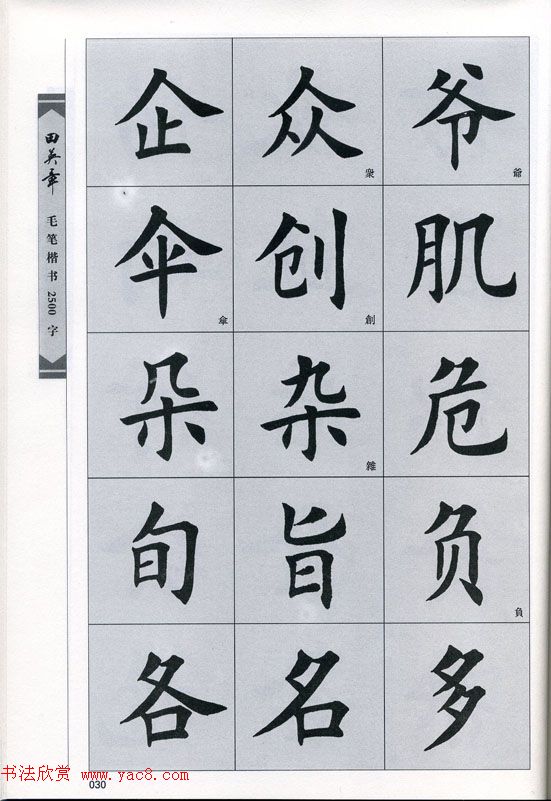 田英章 毛笔楷书 2500 字
企 众 爷
衆 爺
伞 创 肌
傘 創
朵 杂 危
雜
旬 旨 负
負
各 名 多
书法欣赏 www.yac8.com
030